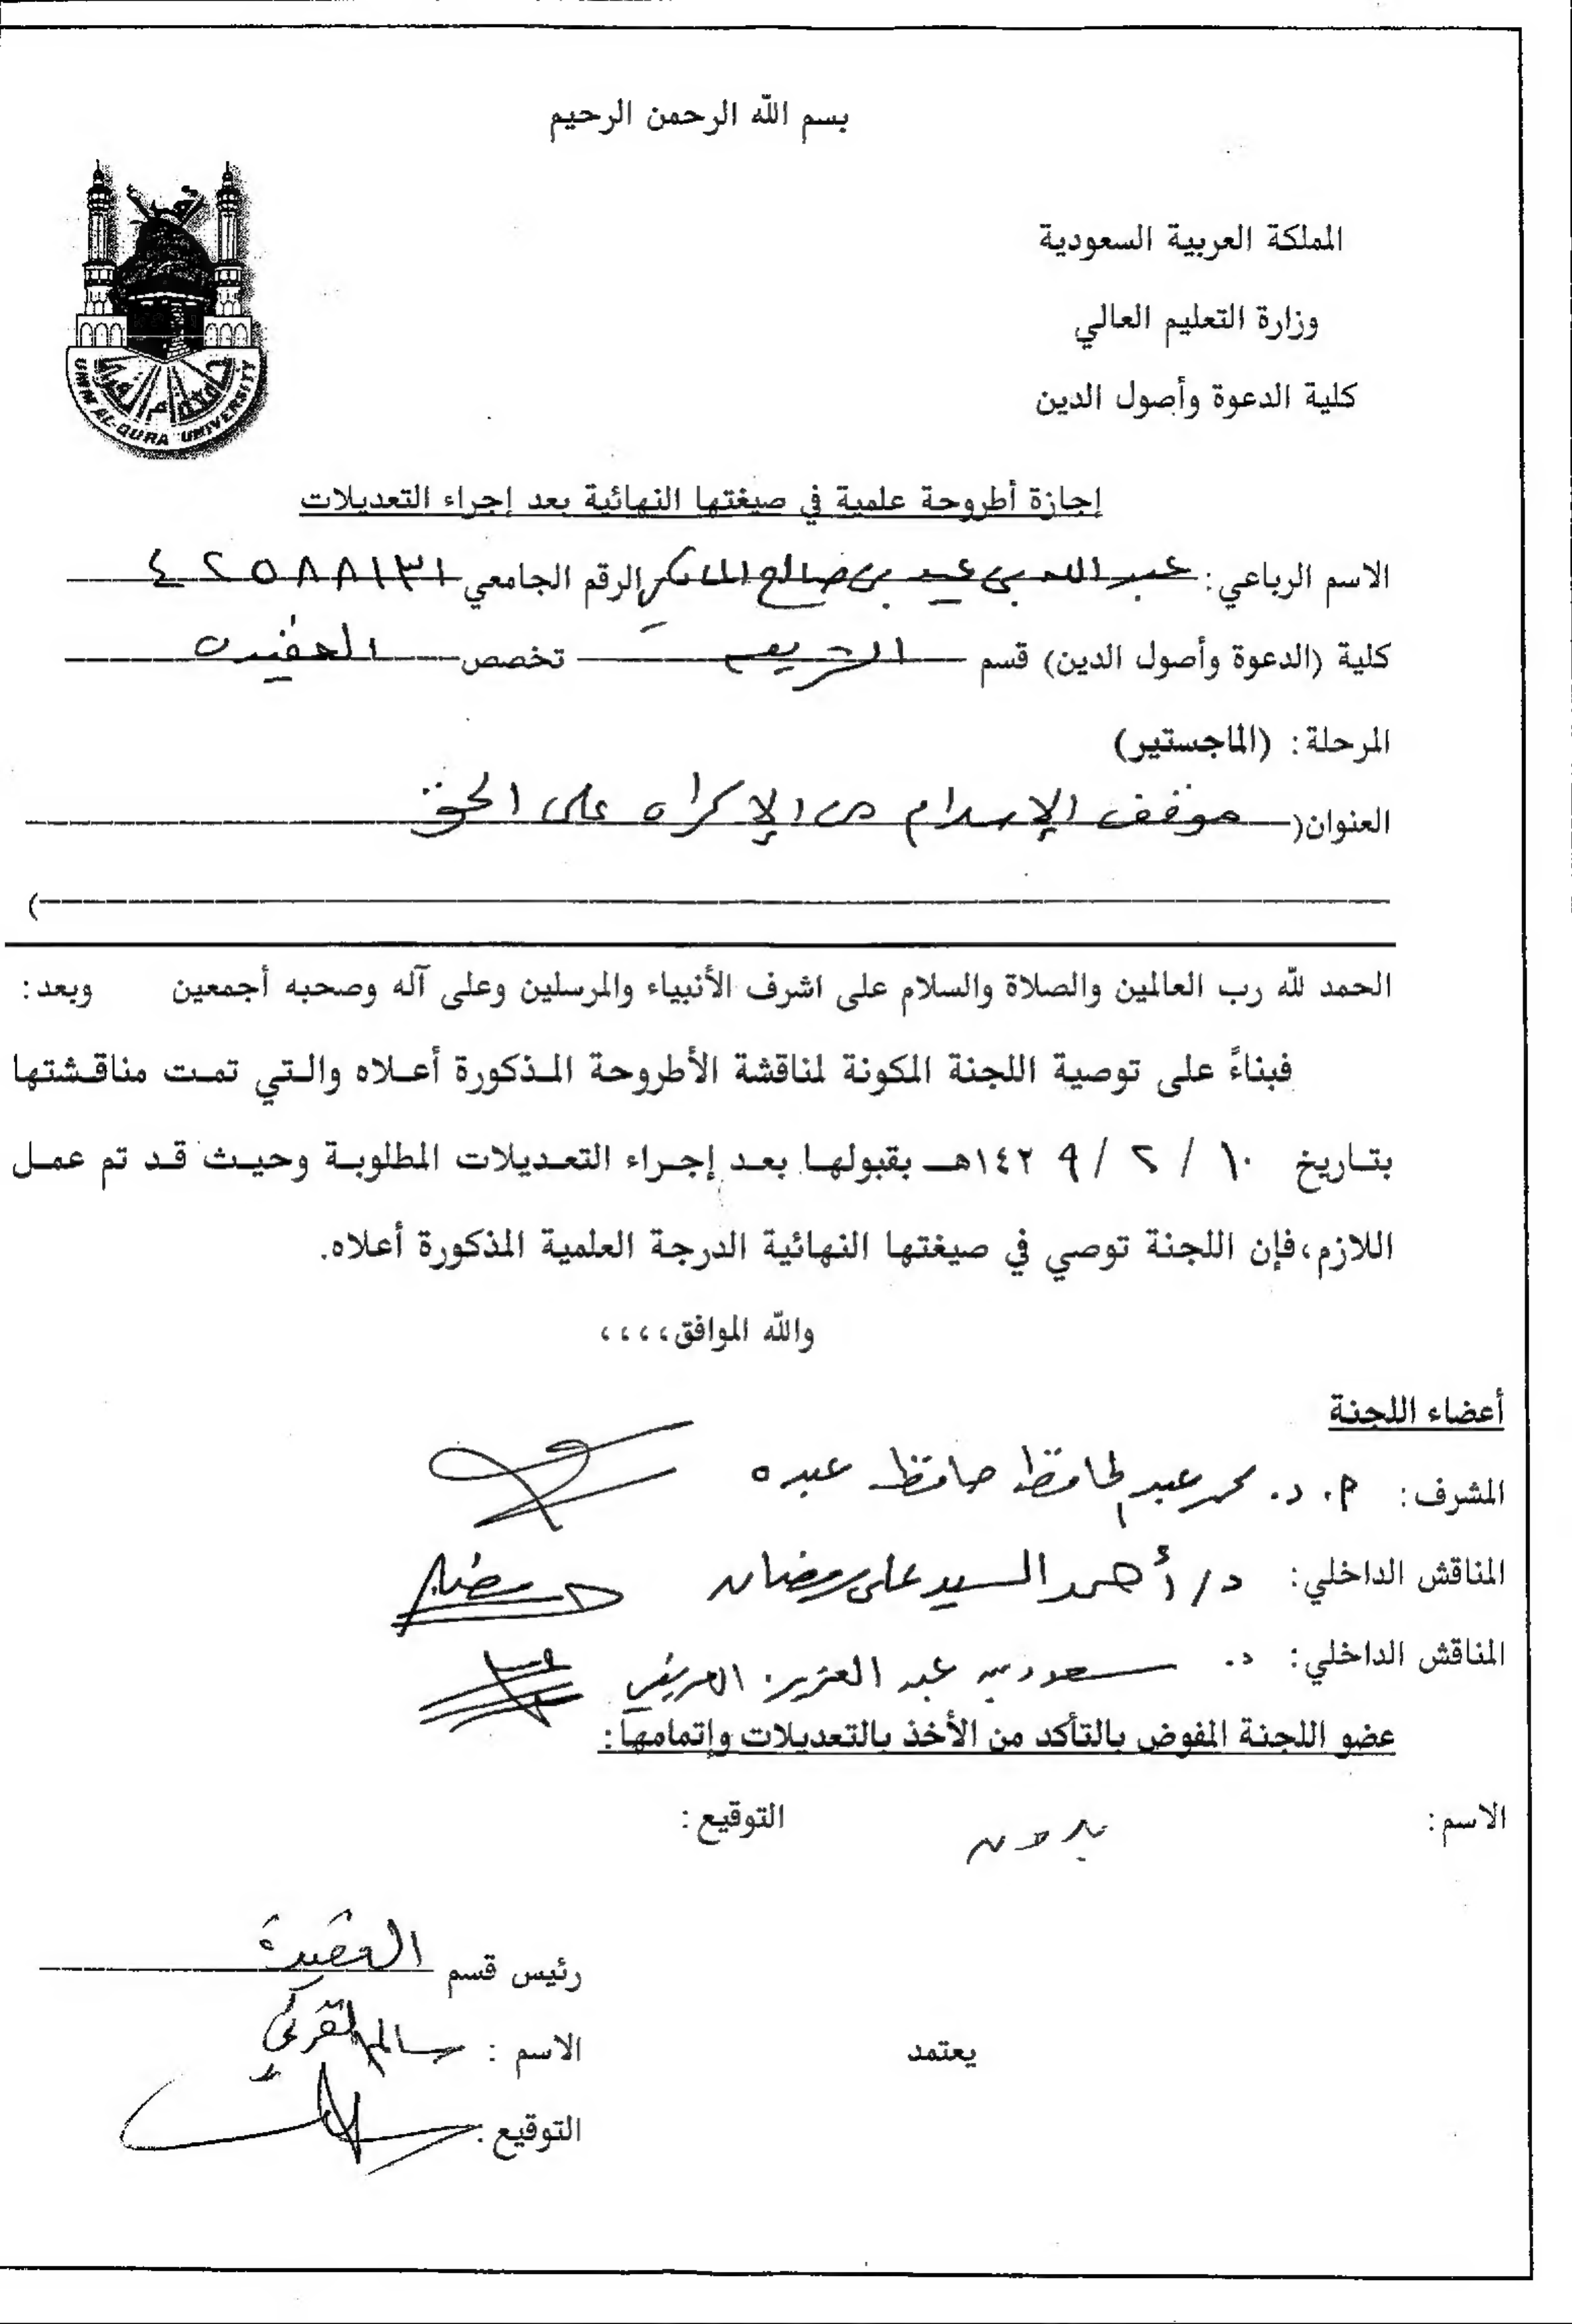 بسم الله الرحمن الرحيم
المملكة العربية السعودية
وزارة التعليم العالي
كلية الدعوة وأصول الدين
جامعة أم القرى
UMM AL-QURA UNIVERSITY
إجازة أطروحة علمية في صيغتها النهائية بعد إجراء التعديلات
الاسم الرباعي: عبد الله بن عيد بن صالح الرقم الجامعي ٤٢٥٨٨١٣١
كلية (الدعوة وأصول الدين) قسم تخصص العقيدة
المرحلة: (الماجستير)
العنوان( موقف الإسلام من الإكراه على الحق
)
الحمد لله رب العالمين والصلاة والسلام على اشرف الأنبياء والمرسلين وعلى آله وصحبه أجمعين وبعد:
فبناءً على توصية اللجنة المكونة لمناقشة الأطروحة المذكورة أعلاه والتي تمت مناقشتها
بتاريخ ١٠ / ٢ / ١٤٢٩هـ بقبولها بعد إجراء التعديلات المطلوبة وحيث قد تم عمل
اللازم،فإن اللجنة توصي في صيغتها النهائية الدرجة العلمية المذكورة أعلاه.
والله الموافق،،،،
أعضاء اللجنة
المشرف: أ. د. محمد عبد الحافظ حافظ عبده
المناقش الداخلي: د/ أحمد السيد علي رمضان
المناقش الداخلي: د. سعود بن عبد العزيز العريفي
عضو اللجنة المفوض بالتأكد من الأخذ بالتعديلات وإتمامها:
الاسم: بدون التوقيع:
رئيس قسم العقيدة
يعتمد الاسم : سالم القرني
التوقيع: